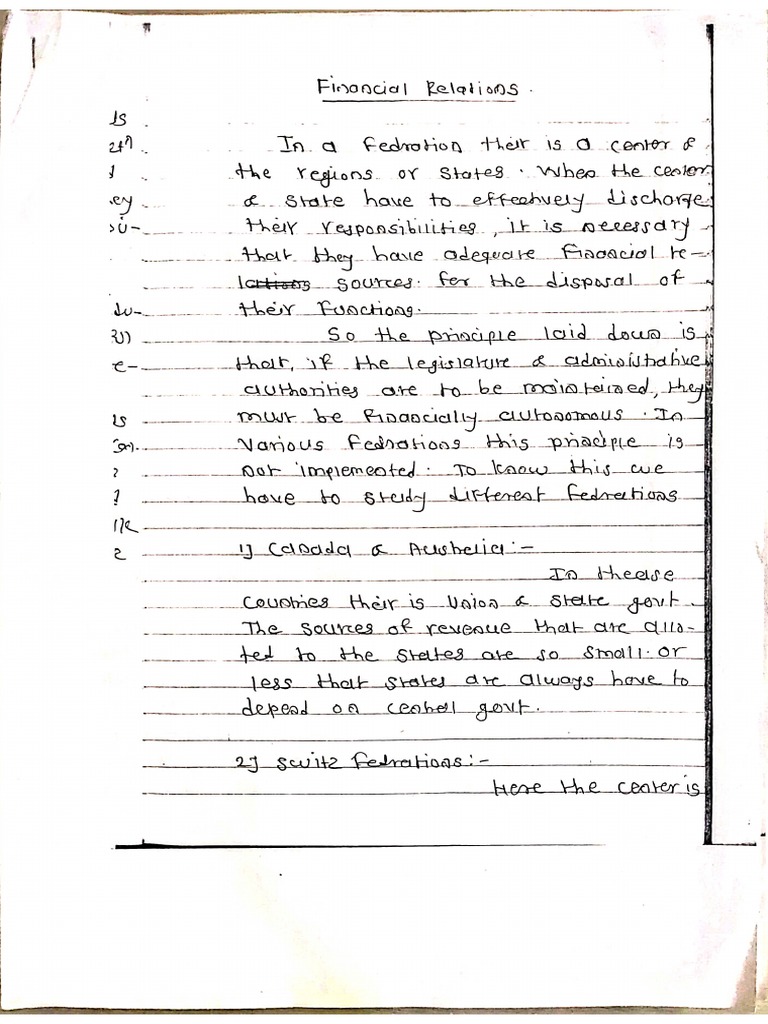 Financial Relations.
In a Fedration their is a center &
the regions or States. When the center
& State have to effectively discharge
their responsibilities, it is necessary
that they have adequate Financial re-
lations sources. for the disposal of
their Functions.
So the principle laid down is
that, if the legislature & administrative
authorities are to be maintained, they
must be Financially autonomous. In
various Fedrations this principle is
not implemented. To know this we
have to study different Fedrations
1) Canada & Australia:-
In thease
Countries their is Union & State govt.
The sources of revenue that are allo-
ted to the states are so small. or
less that states are always have to
depend on central govt.
2) Switz Fedrations:-
Here the center is